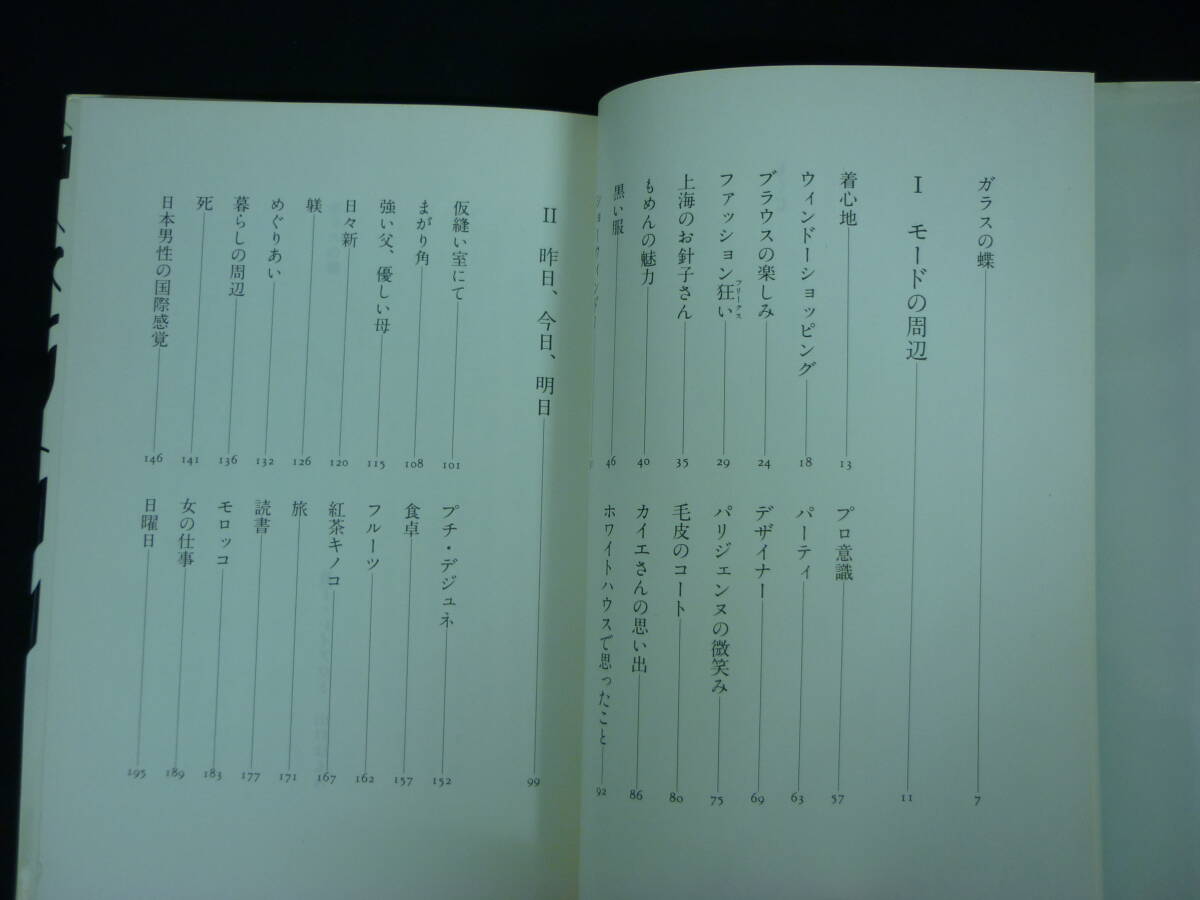 ガラスの蝶 7
I モードの周辺 11
着心地 13
ウィンドーショッピング 18
ブラウスの楽しみ 24
ファッション狂い 29
フリークス
上海のお針子さん 35
もめんの魅力 40
黒い服 46
プロ意識 57
パーティ 63
デザイナー 69
パリジェンヌの微笑み 75
毛皮のコート 80
カイエさんの思い出 86
ホワイトハウスで思ったこと 92
II 昨日、今日、明日 99
仮縫い室にて 101
まがり角 108
強い父、優しい母 115
日々新 120
躾 126
めぐりあい 132
暮らしの周辺 136
死 141
日本男性の国際感覚 146
プチ・デジュネ 152
食卓 157
フルーツ 162
紅茶キノコ 167
旅 171
読書 177
モロッコ 183
女の仕事 189
日曜日 195